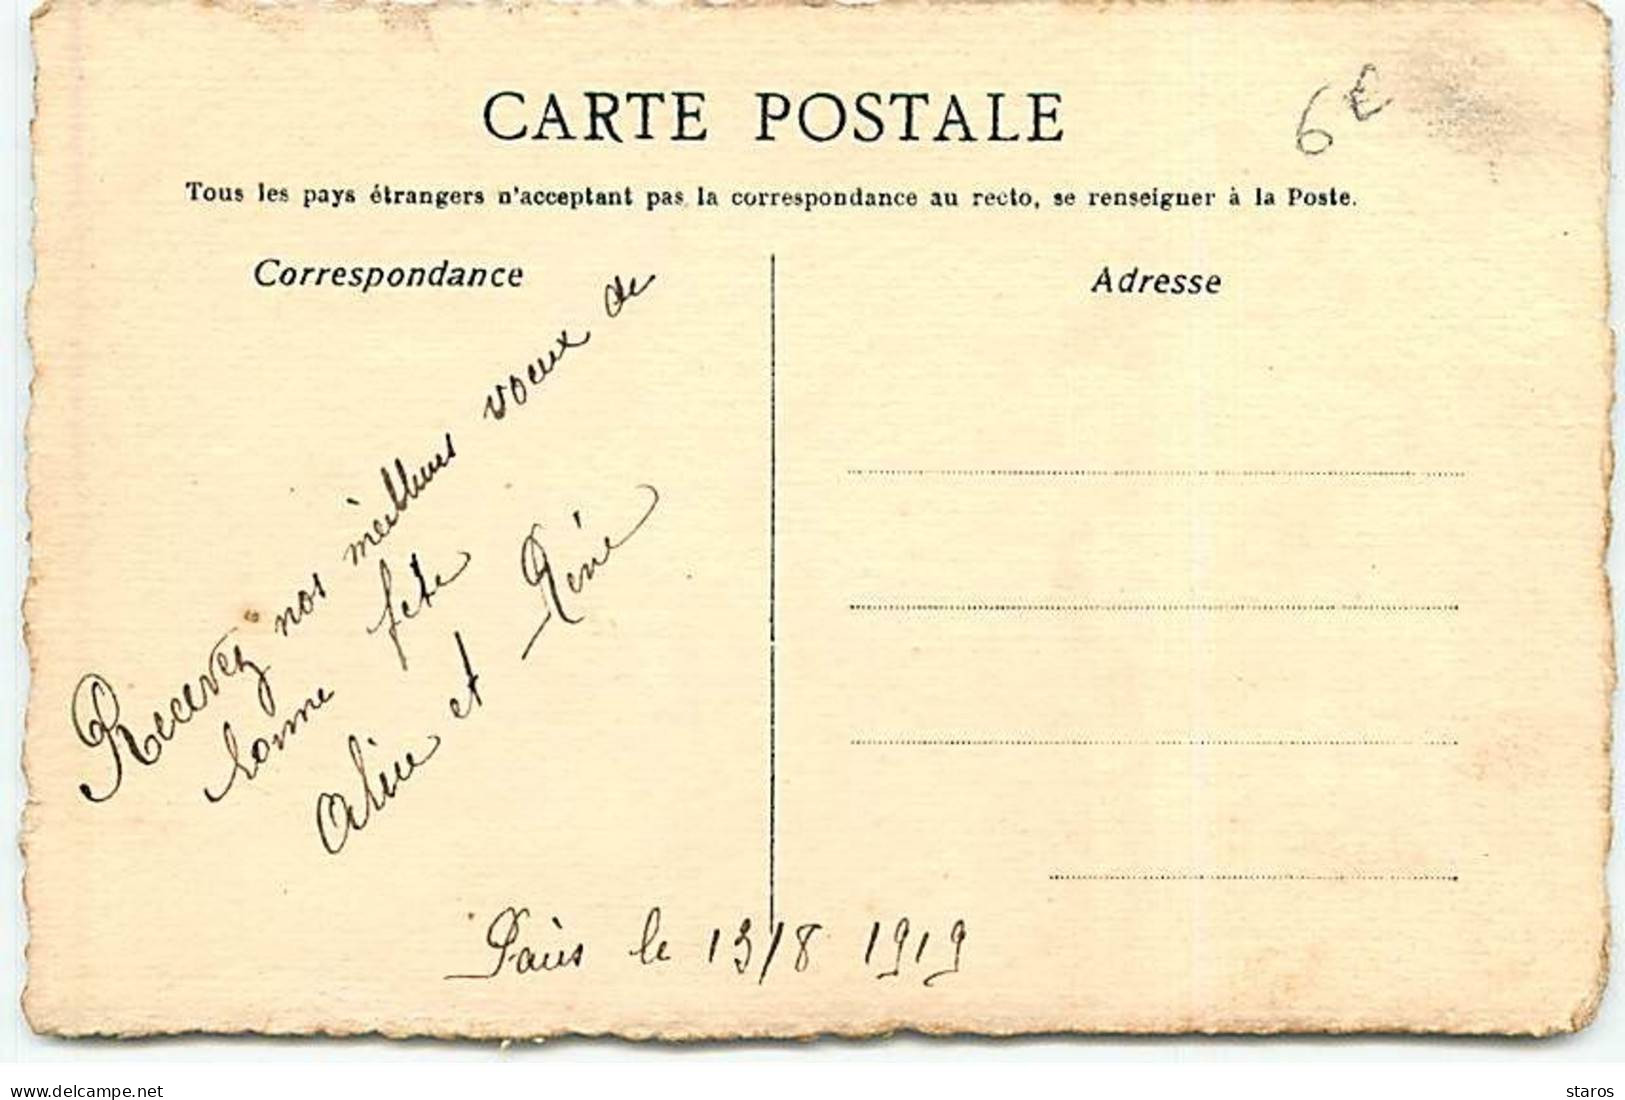 CARTE POSTALE
6€
Tous les pays étrangers n'acceptant pas la correspondance au recto, se renseigner à la Poste.
Correspondance
Adresse
Recevez nos meilleurs voeux de
bonne fête
Aline et René
Paris le 13/8 1919
www.delcampe.net
staros